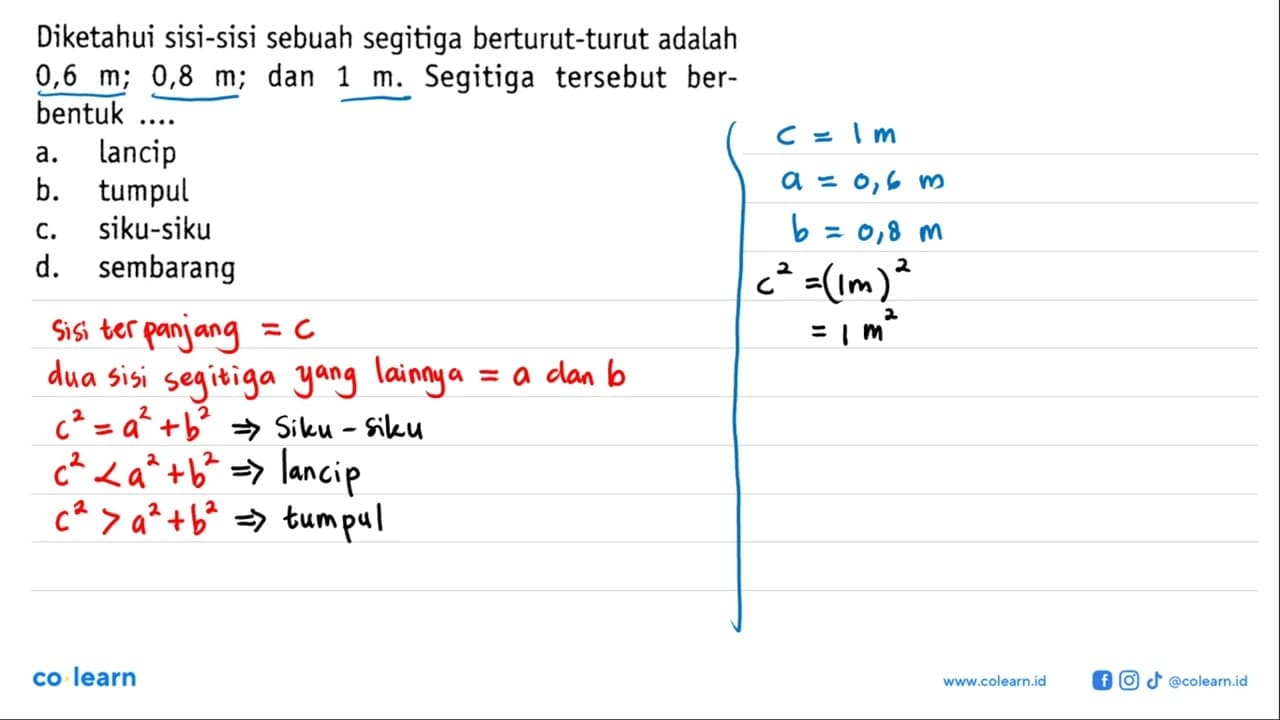 Diketahui sisi-sisi sebuah segitiga berturut-turut adalah
0,6 m; 0,8 m; dan 1 m. Segitiga tersebut ber-
bentuk ....
a. lancip
b. tumpul
c. siku-siku
d. sembarang
sisi terpanjang = c
dua sisi segitiga yang lainnya = a dan b
c² = a² + b² ⇒ Siku-siku
c² < a² + b² ⇒ lancip
c² > a² + b² ⇒ tumpul
c = 1 m
a = 0,6 m
b = 0,8 m
c² = (1m)²
= 1 m²
co·learn
www.colearn.id
@colearn.id